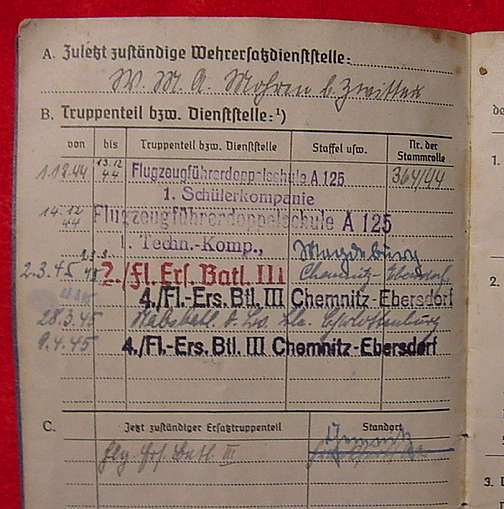 A. Zuletzt zuständige Wehrersatzdienststelle:
W. M. A. Mohren b. Zwittau
B. Truppenteil bzw. Dienststelle:¹)
von bis Truppenteil bzw. Dienststelle Staffel usw. Nr. der Stammrolle
1.12.44 13.12 44 Flugzeugführerdoppelschule A 125 364/44
1. Schülerkompanie
14.12 44 Flugzeugführerdoppelschule A 125
1. Techn.-Komp., Magdeburg
2.3.45 2./Fl. Ers. Batl. III Chemnitz-Ebersdorf
4./Fl.-Ers. Btl. III Chemnitz-Ebersdorf
28.3.45
9.4.45 4./Fl.-Ers. Btl. III Chemnitz-Ebersdorf
C. Jetzt zuständiger Ersatztruppenteil Standort
Flg. Ers. Batl. III Chemnitz
1.
2.
3.